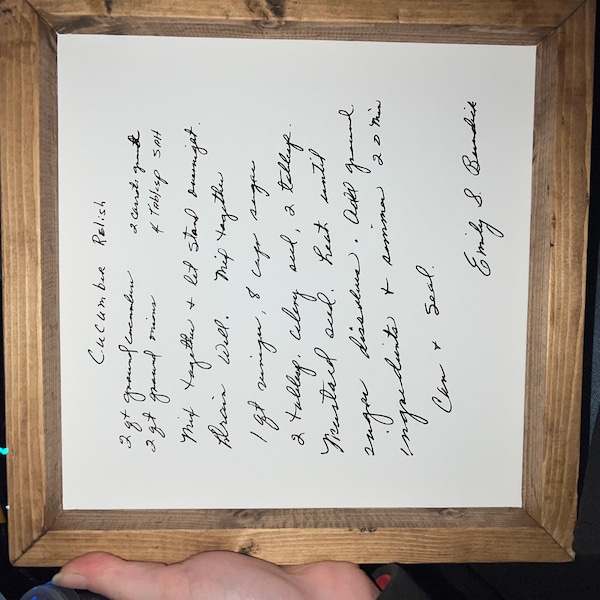 Cucumber Relish
2 qt ground cucumbers 2 carrots ground
2 qt ground onions 4 Tablesp salt
Mix together + let stand overnight.
Drain Well. Mix together
1 qt vinegar, 8 cups sugar
2 tablesp. celery seed, 2 tablesp.
Mustard seed. heat until
sugar dissolves. Add ground
ingredients + simmer 20 Min
Can + Seal.
Emily S. Burdick